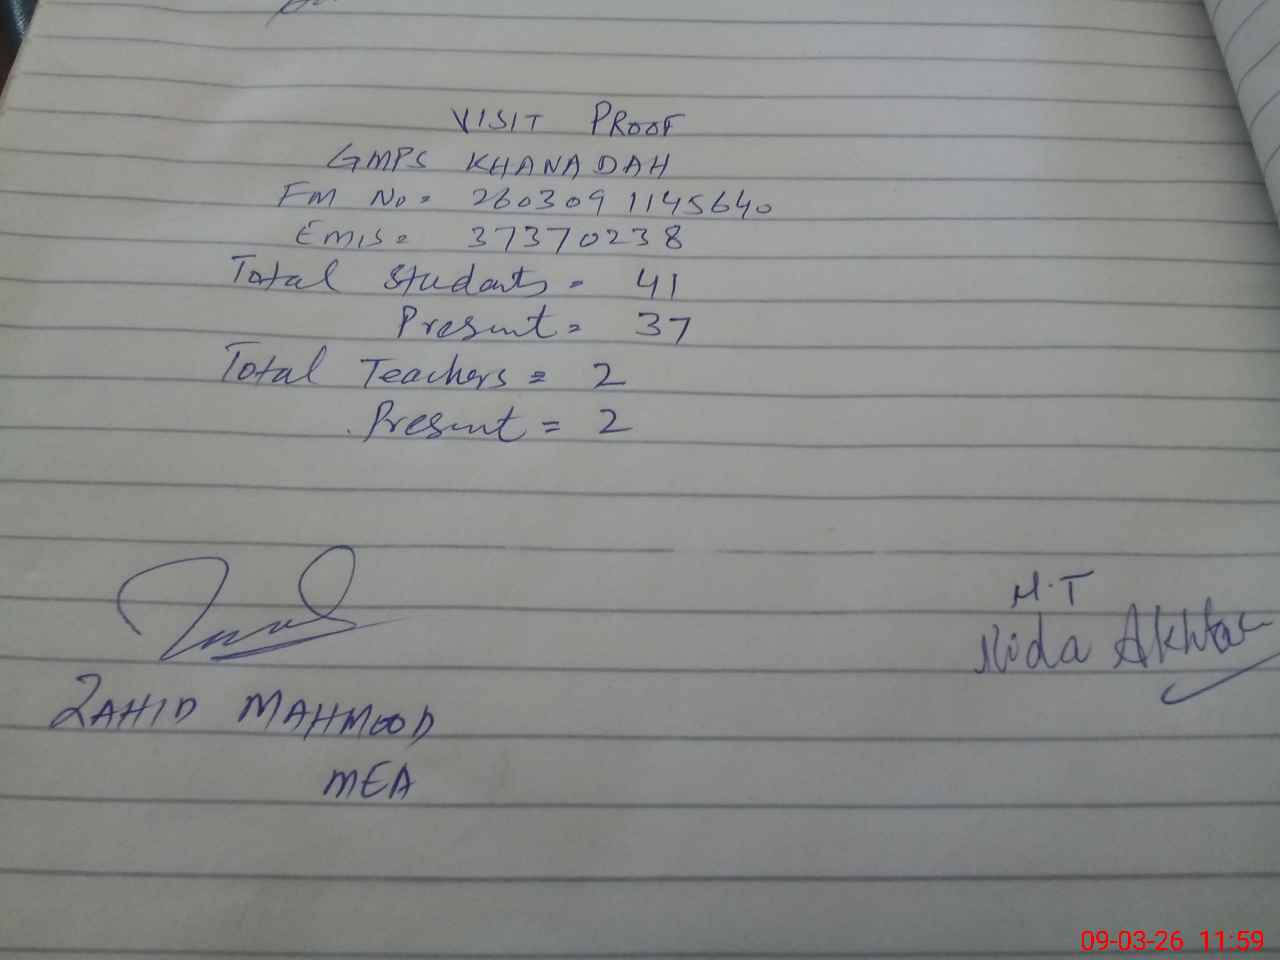 VISIT PROOF
GMPS KHANADAH
FM No = 2603091145640
EMIS = 37370238
Total Students = 41
Present = 37
Total Teachers = 2
Present = 2
H.T
Nida Akhtar
ZAHID MAHMOOD
MEA
09-03-26 11:59